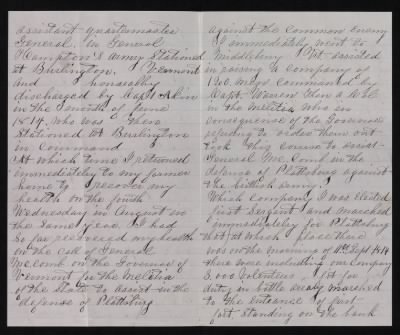 assistant quartermaster
General, in General
Hampton's Army Stationed
at Burlington, Vermont
and honorably
discharged by Capt
in the month of June
1814, who was then
Stationed at Burlington
in command
At which time I returned
immediately to my former
home to recover my
health on the fourth
Wednesday in August in
the same year, I had
so far recovered my health
on the call of General
Mccomb on the Governor of
Vermont for the Melitia
of the State to assist in the
defense of Plattsburg
against the common enemy
I immediately went to
Middlebury Vt assisted
in raising a company of
100 men commanded by
Capt. Warren then a
in the melitia who in
consequence of the Governor
refusing to order them out
took this course to assist
General Mc Comb in the
defense of Plattsburg against
the british army.
Which company I was elected
first Sergeant and marched
immediately for Plattsburg
that at which place there
was on the morning of 11th Sept 1814
there were including our Company
3,000 volunteers fit for
duty in battle array marched
to the entrance of
fort standing on the bank